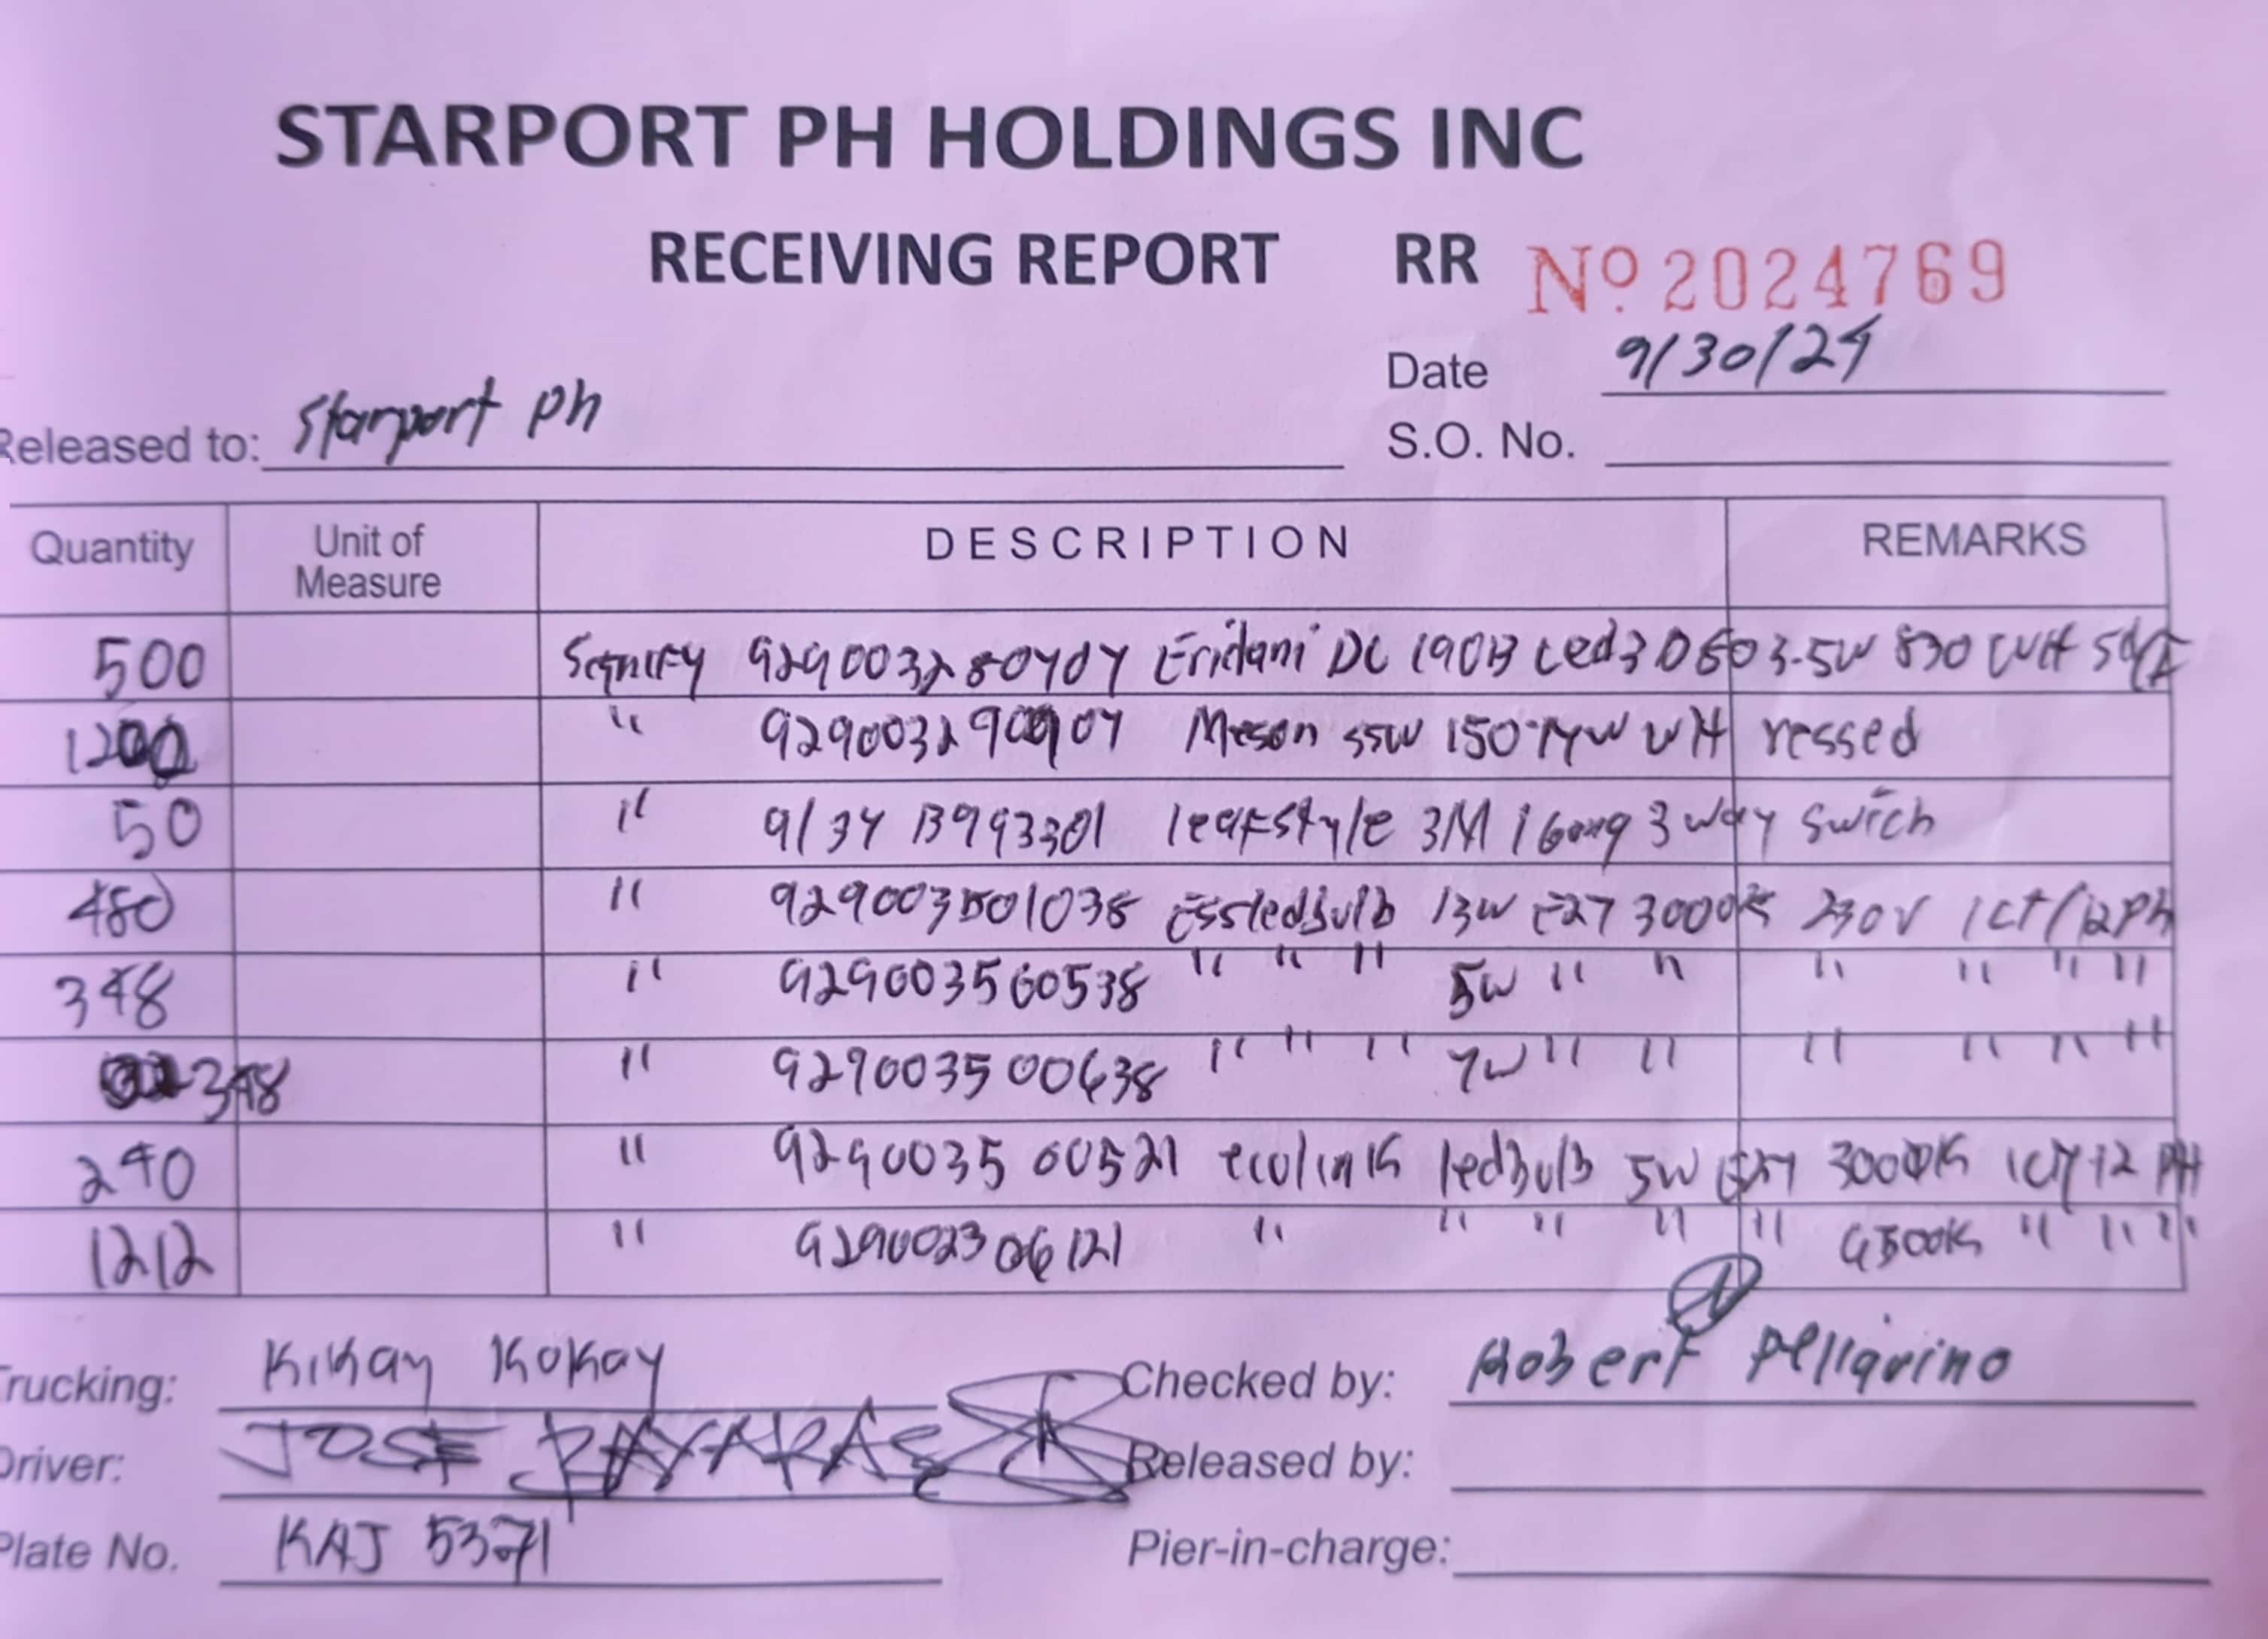 STARPORT PH HOLDINGS INC
RECEIVING REPORT RR Nº 2024769
Date 9/30/24
Released to: Starport Ph
S.O. No.
Quantity Unit of Measure DESCRIPTION REMARKS
500 Signify 929003280404 Eridani DL 190B Led3 D60 3.5W 830 WH
1200 " Meson 55W 150 WH ressed
50 " 9137 13993301 leafstyle 3M 1 Gang 3 way swich
480 " 929003501038 EssLedbulb 13W E27 3000K 230V 1CT/12PH
348 " 929003500538 " " " 5W " " " " " "
348 " 929003500638 " " " 7W " " " " " "
240 " 929003500521 ecolink ledbulb 5W E27 3000K 1CT/12 PH
1212 " 929002306121 " " " " " 6500K " " "
Trucking: Kikay Kokay
Checked by: Robert Pelligrino
Driver: JOSE
Released by:
Plate No. KAJ 5371
Pier-in-charge: